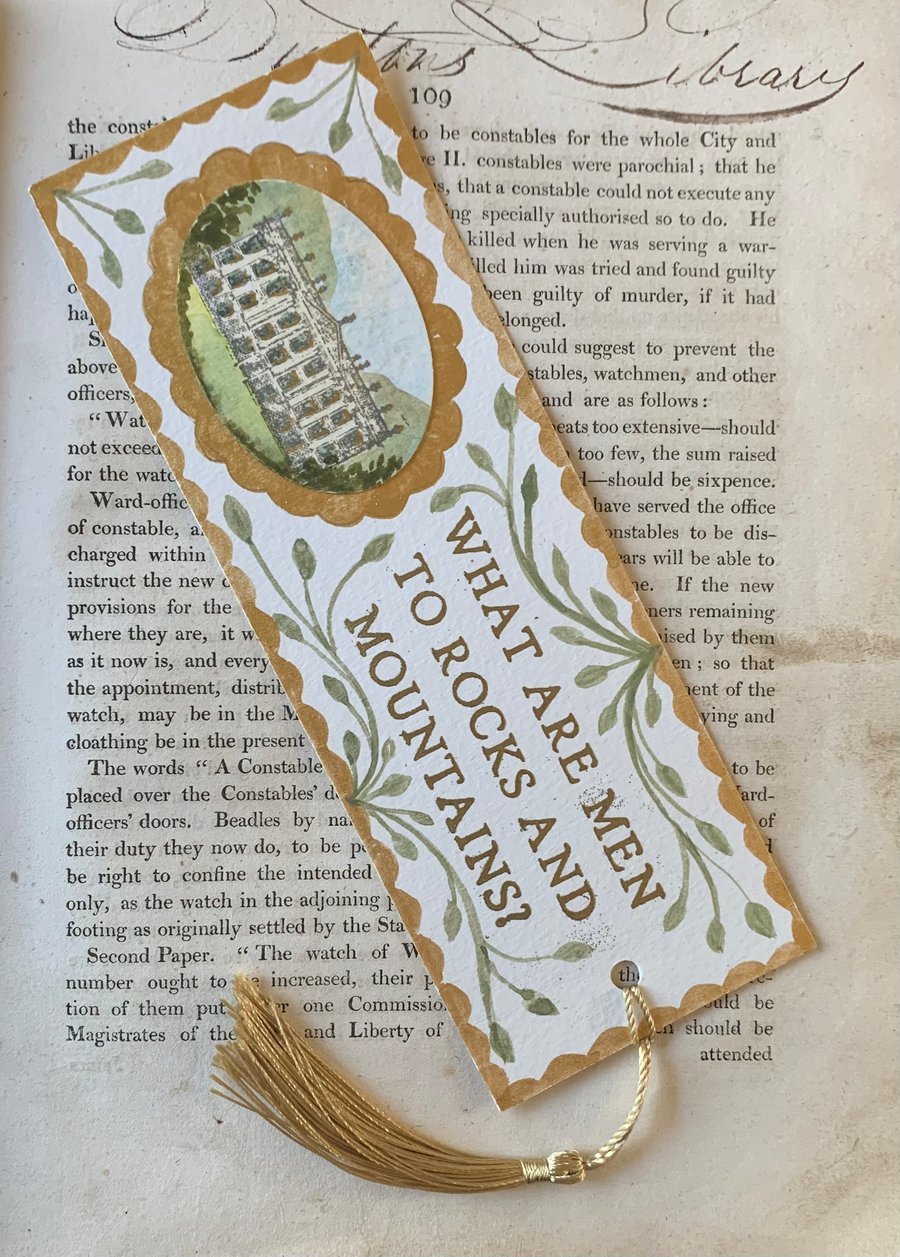 Library
109
the
to be constables for the whole City and
II. constables were parochial; that he
that a constable could not execute any
specially authorised so to do. He
killed when he was serving a war-
him was tried and found guilty
been guilty of murder, if it had
could suggest to prevent the
above
watchmen, and other
officers,
and are as follows:
too extensive—should
not exceed
too few, the sum raised
for the
—should be sixpence.
Ward-
have served the office
of constable,
to be dis-
charged within
will be able to
instruct the new
If the new
provisions for the
remaining
where they are, it
by them
as it now is, and every
; so that
the appointment,
of the
watch, may be in the
and
cloathing be in the present
The words “ A Constable
to be
placed over the Constables'
officers' doors. Beadles by
of
their duty they now do, to be
be right to confine the intended
only, as the watch in the adjoining
footing as originally settled by the
Second Paper. “ The watch of
number ought to increased, their
be
tion of them put one
should be
Magistrates of the and Liberty of
attended
WHAT ARE MEN
TO ROCKS AND
MOUNTAINS?
the